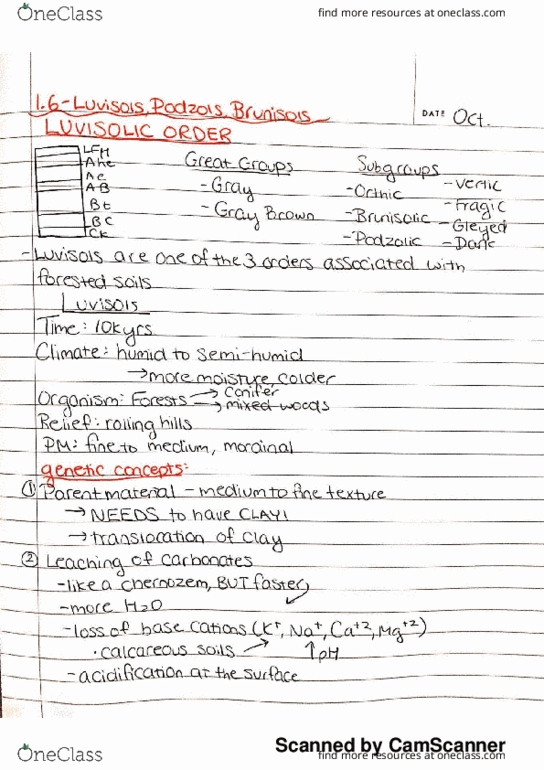 OneClass
find more resources at oneclass.com
1.6-Luvisols, Podzols, Brunisols
DATE Oct.
LUVISOLIC ORDER
LFH
Ahe
Ae
AB
Bt
BC
Ck
Great Groups
-Gray
-Gray Brown
Subgroups
-Orthic
-Brunisolic
-Podzolic
-Vertic
-Fragic
-Gleyed
-Dark
-Luvisols are one of the 3 orders associated with
forested soils
Luvisols
Time: 10kyrs
Climate: humid to semi-humid
→more moisture, colder
Organism: Forests → Conifer
→ mixed woods
Relief: rolling hills
PM: fine to medium, morainal
genetic concepts:
① Parent material - medium to fine texture
→ NEEDS to have CLAY!
→ translocation of clay
② Leaching of carbonates
-like a chernozem, BUT faster
-more H2O
-loss of base cations (K+, Na+, Ca+2, Mg+2)
• calcareous soils → ↑pH
-acidification at the surface
Scanned by CamScanner
OneClass
find more resources at oneclass.com